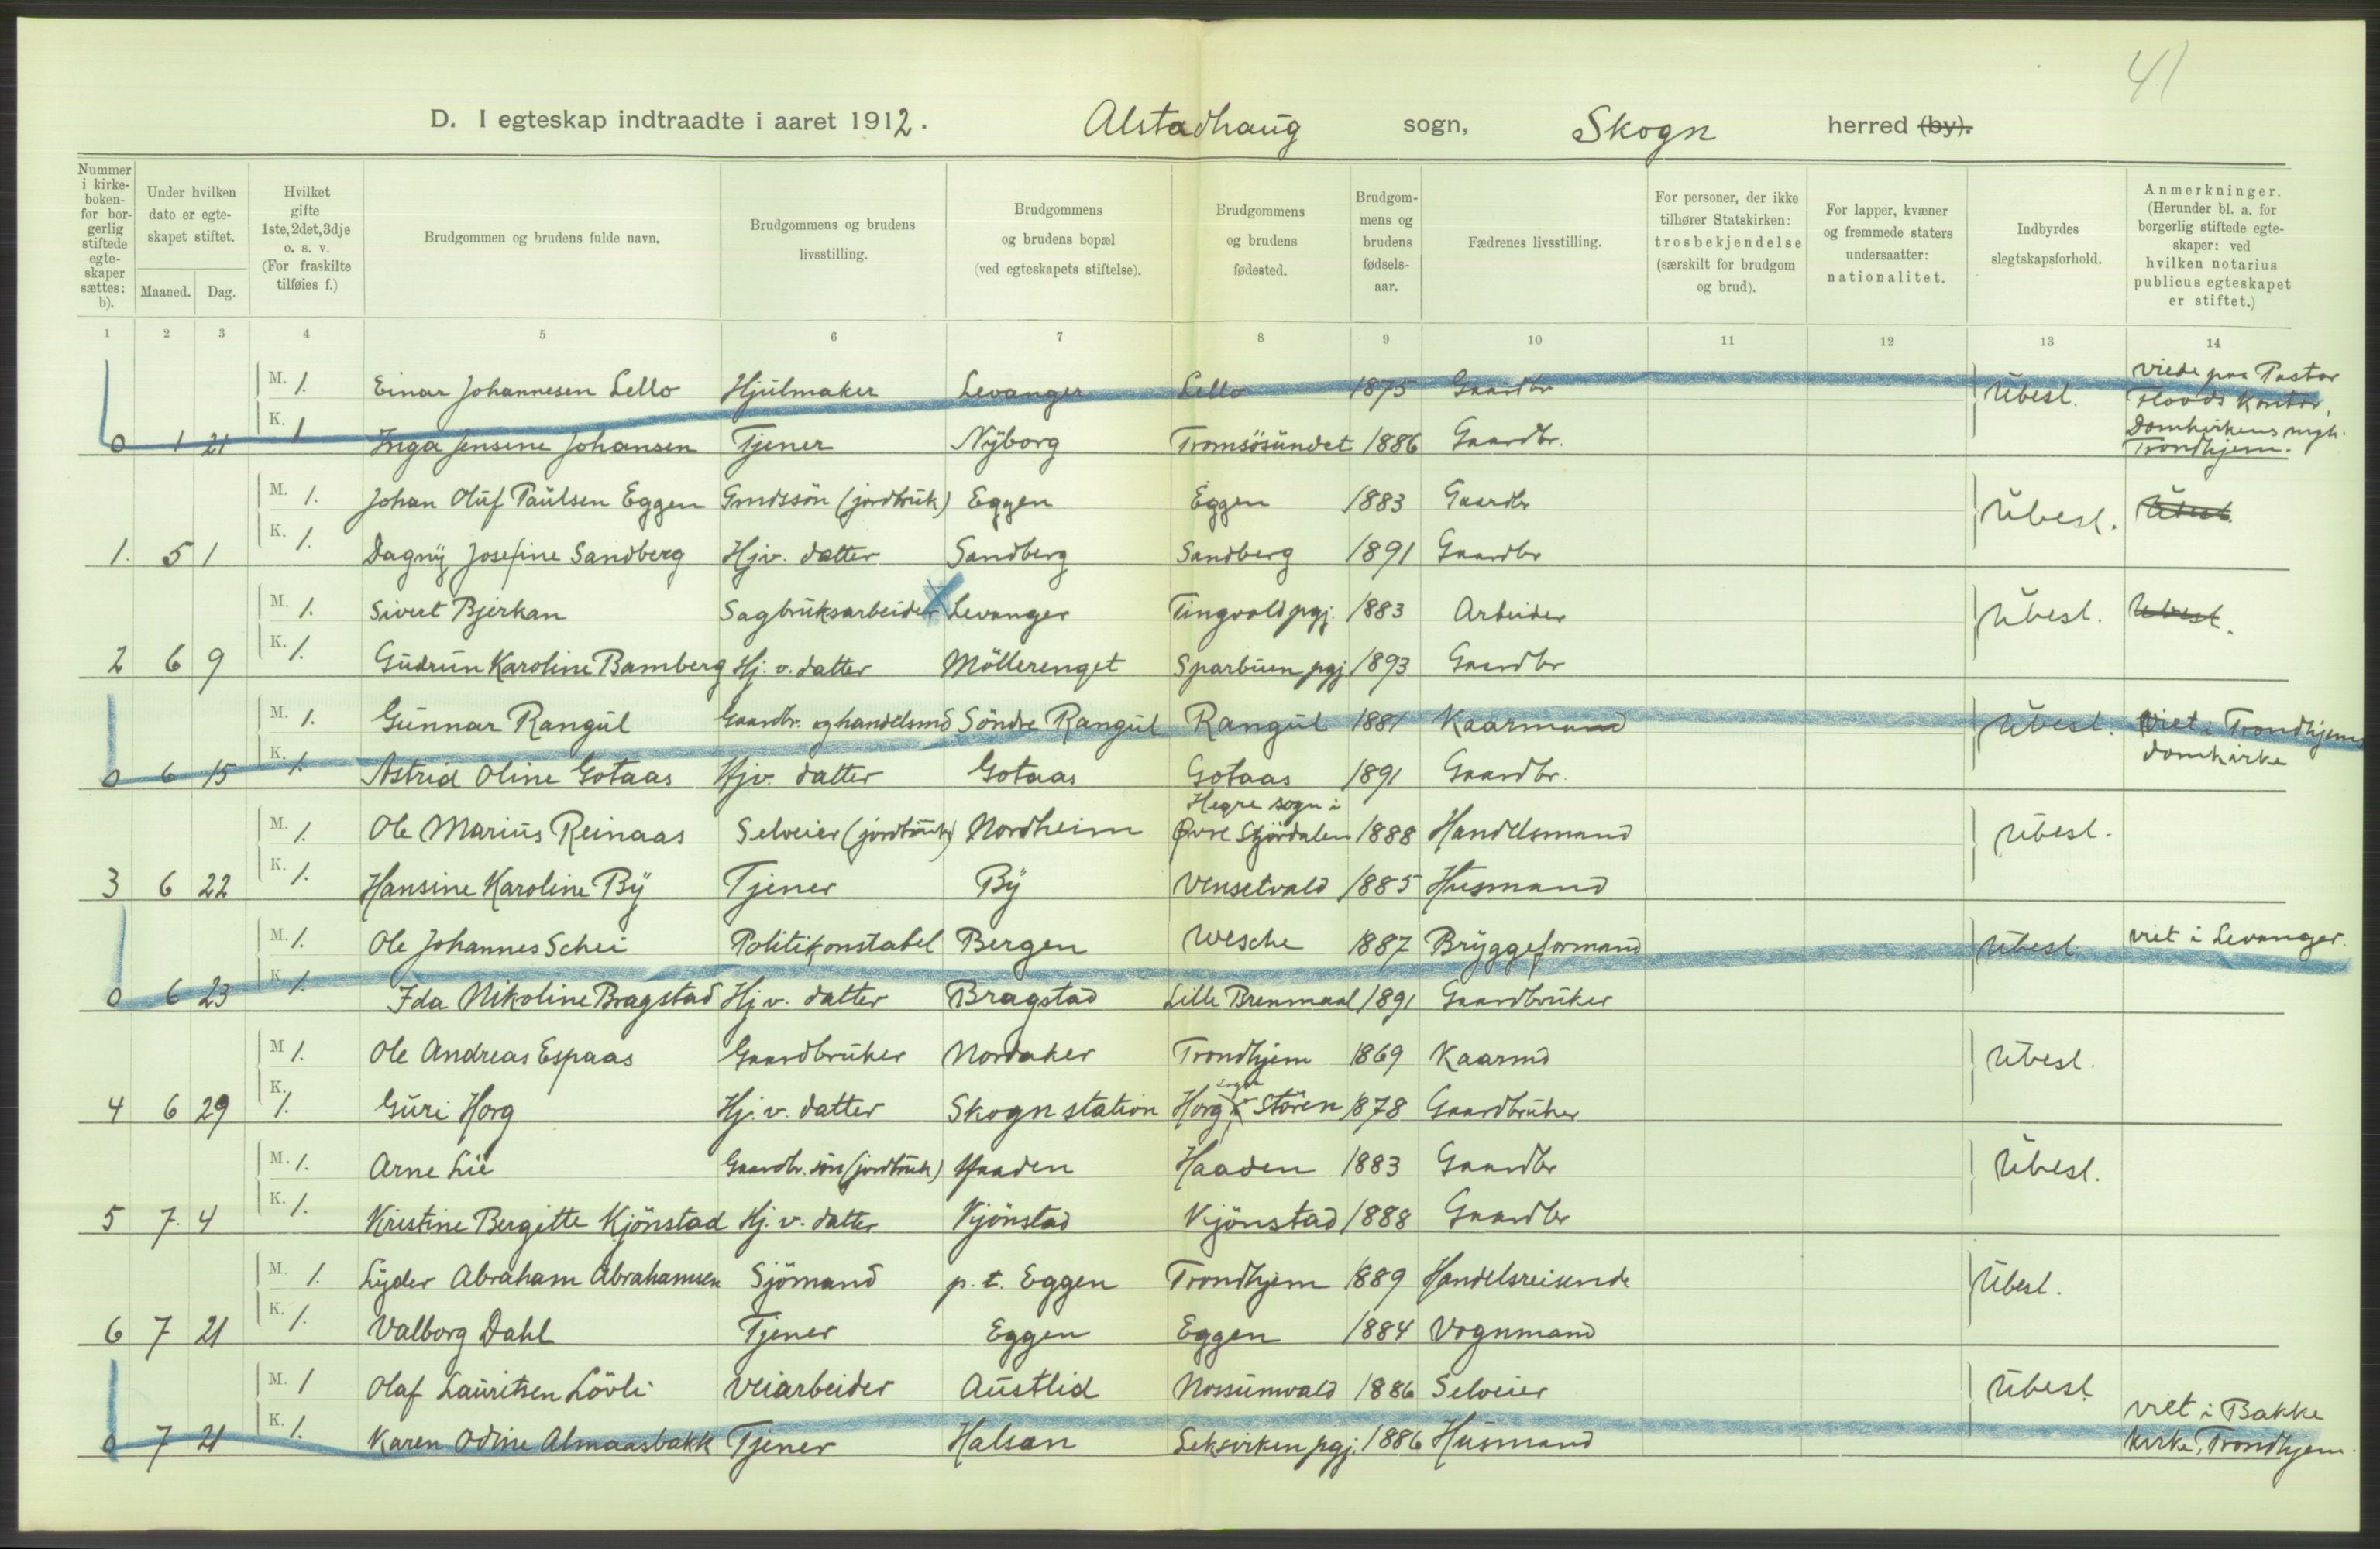 41
D. I egteskap indtraadte i aaret 1912. Alstadhaug sogn, Skogn herred (by).
Nummer i kirke-boken- for bor-gerlig stiftede egte-skaper sættes: b). Under hvilken dato er egte-skapet stiftet. Maaned. Dag. Hvilket gifte 1ste, 2det, 3dje o. s. v. (For fraskilte tilføies f.) Brudgommen og brudens fulde navn. Brudgommens og brudens livsstilling. Brudgommens og brudens bopæl (ved egteskapets stiftelse). Brudgommens og brudens fødested. Brudgom-mens og brudens fødsels-aar. Fædrenes livsstilling. For personer, der ikke tilhører Statskirken: trosbekjendelse (særskilt for brudgom og brud). For lapper, kvæner og fremmede staters undersaatter: nationalitet. Indbyrdes slegtskapsforhold. Anmerkninger. (Herunder bl. a. for borgerlig stiftede egte-skaper: ved hvilken notarius publicus egteskapet er stiftet.)
1 2 3 4 5 6 7 8 9 10 11 12 13 14
M. 1. Einar Johannesen Lello Hjulmaker Levanger Lello 1875 Gaardbr Ubesl. viede paa Pastor Floods Kontor,
0 1 21 K. 1 Inga Jensine Johansen Tjener Nyborg Tromsösundet 1886 Gaardbr. Domkirkens mgh. Trondhjem.
M. 1. Johan Oluf Paulsen Eggen Gmdssön (jordbruk) Eggen Eggen 1883 Gaardbr Ubesl. Ubesl.
1. 5 1 K. 1. Dagny Josefine Sandberg Hjv. datter Sandberg Sandberg 1891 Gaardbr
M. 1. Sivert Bjerkan Sagbruksarbeider Levanger Tingvold pgj. 1883 Arbeider Ubesl. Ubesl.
2 6 9 K. 1. Gudrun Karoline Bamberg Hj. v. datter Möllerenget Sparbuen pgj 1893 Gaardbr
M. 1. Gunnar Rangul Gaardbr. og handelsmd Söndre Rangul Rangul 1881 Kaarmand Ubesl. Viet i Trondhjems
0 6 15 K. 1. Astrid Oline Gotaas Hjv. datter Gotaas Gotaas 1891 Gaardbr. domkirke
M. 1. Ole Marius Reinaas Selveier (jordbruk) Nordheim Hegre sogn i Øvre Stjördalen 1888 Handelsmand Ubesl.
3 6 22 K. 1. Hansine Karoline By Tjener By Vensetvald 1885 Husmand
M. 1. Ole Johannes Schei Politikonstabel Bergen Wesche 1887 Bryggeformand Ubesl viet i Levanger.
0 6 23 K. 1. Ida Nikoline Bragstad Hjv. datter Bragstad Lille Brenmaal 1891 Gaardbruker
M 1. Ole Andreas Espaas Gaardbruker Nordaker Trondhjem 1869 Kaarmd Ubesl.
4 6 29 K. 1. Guri Horg Hj. v. datter Skogn station Horg sogn Stören 1878 Gaardbruker
M. 1. Arne Lie Gaardbr. sön (jordbruk) Haaden Haaden 1883 Gaardbr Ubesl.
5 7. 4 K. 1. Kristine Bergitte Kjönstad Hj. v. datter Kjönstad Kjönstad 1888 Gaardbr
M. 1. Lyder Abraham Abrahamsen Sjömand p. t. Eggen Trondhjem 1889 Handelsreisende Ubesl.
6 7 21 K. 1. Valborg Dahl Tjener Eggen Eggen 1884 Vognmand
M. 1 Olaf Lauritsen Lövli Veiarbeider Austlid Nossumvald 1886 Selveier Ubesl. viet i Bakke
0 7 21 K. 1. Karen Odine Almaasbakk Tjener Halsan Leksviken pgj. 1886 Husmand kirke, Trondhjem.